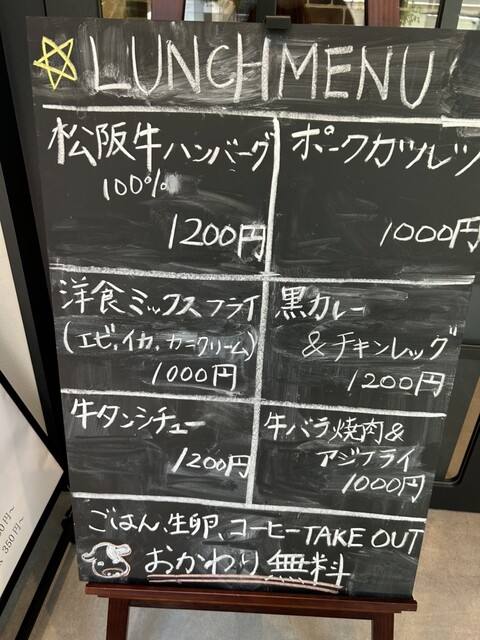 LUNCH MENU
松阪牛ハンバーグ
100%
1200円
ポークカツレツ
1000円
洋食ミックスフライ
(エビ、イカ、カニクリーム)
1000円
黒カレー
&チキンレッグ
1200円
牛タンシチュー
1200円
牛バラ焼肉&
アジフライ
1000円
ごはん、生卵、コーヒーTAKE OUT
おかわり無料
350円~